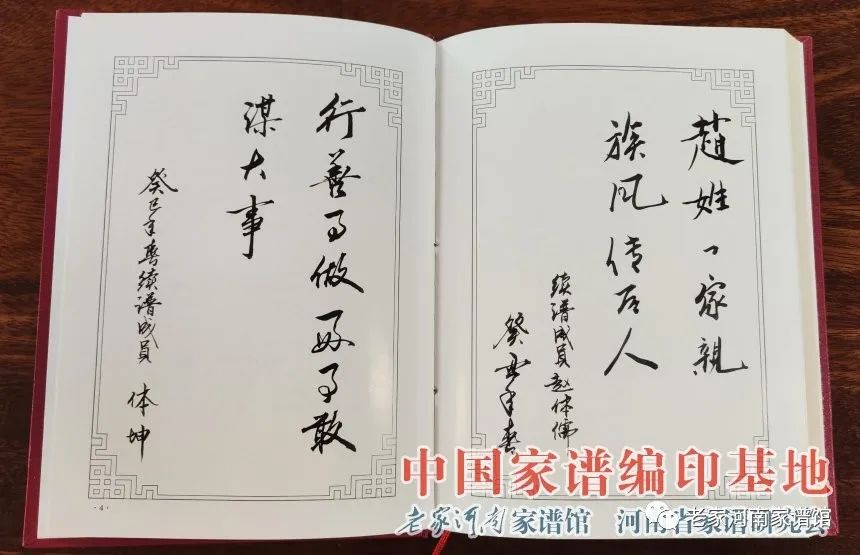 行善事做好事敢
谋大事
癸巳年春续谱成员 体坤
·4·
趙姓一家親
族风传后人
续谱成员赵体儒
癸巳年春
中国家谱编印基地
老家河南家谱馆 河南省家谱研究会
老家河南家谱馆